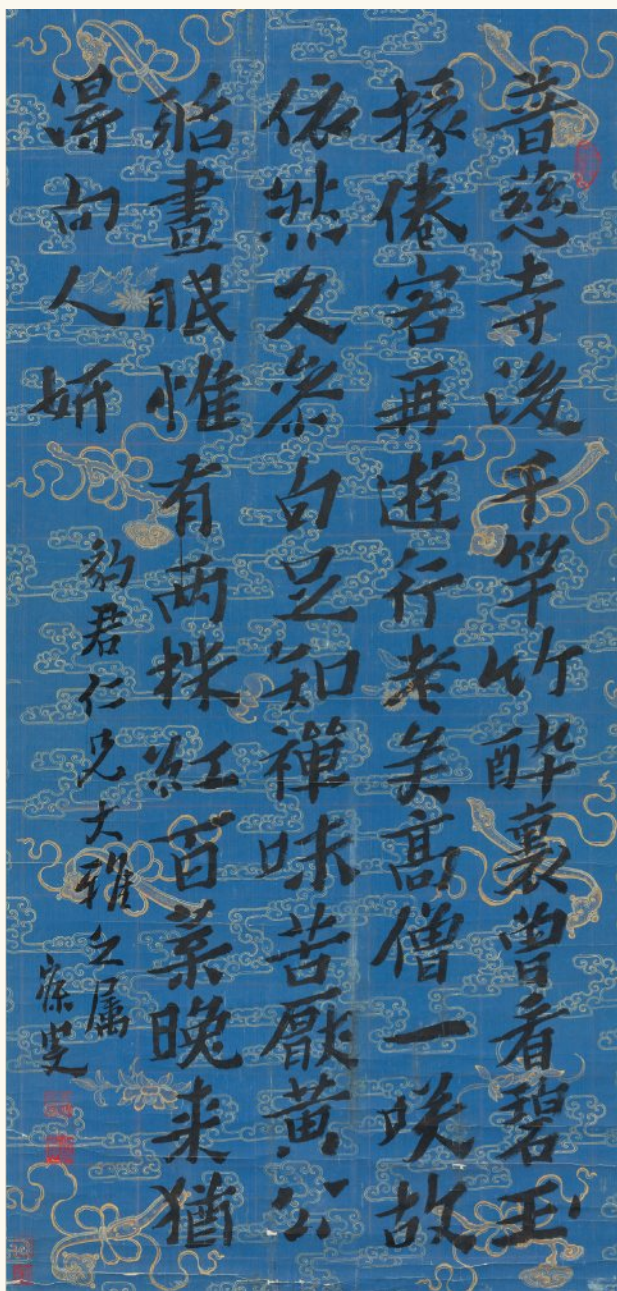 普慈寺後千竿竹醉裏曾看碧玉
椽倦客再遊行老矣高僧一咲故
依然久參白足知禪味苦厭黃公
聒晝眠惟有兩株紅百葉晚来猶
得向人妍
豹君仁兄大雅之属
寐叟